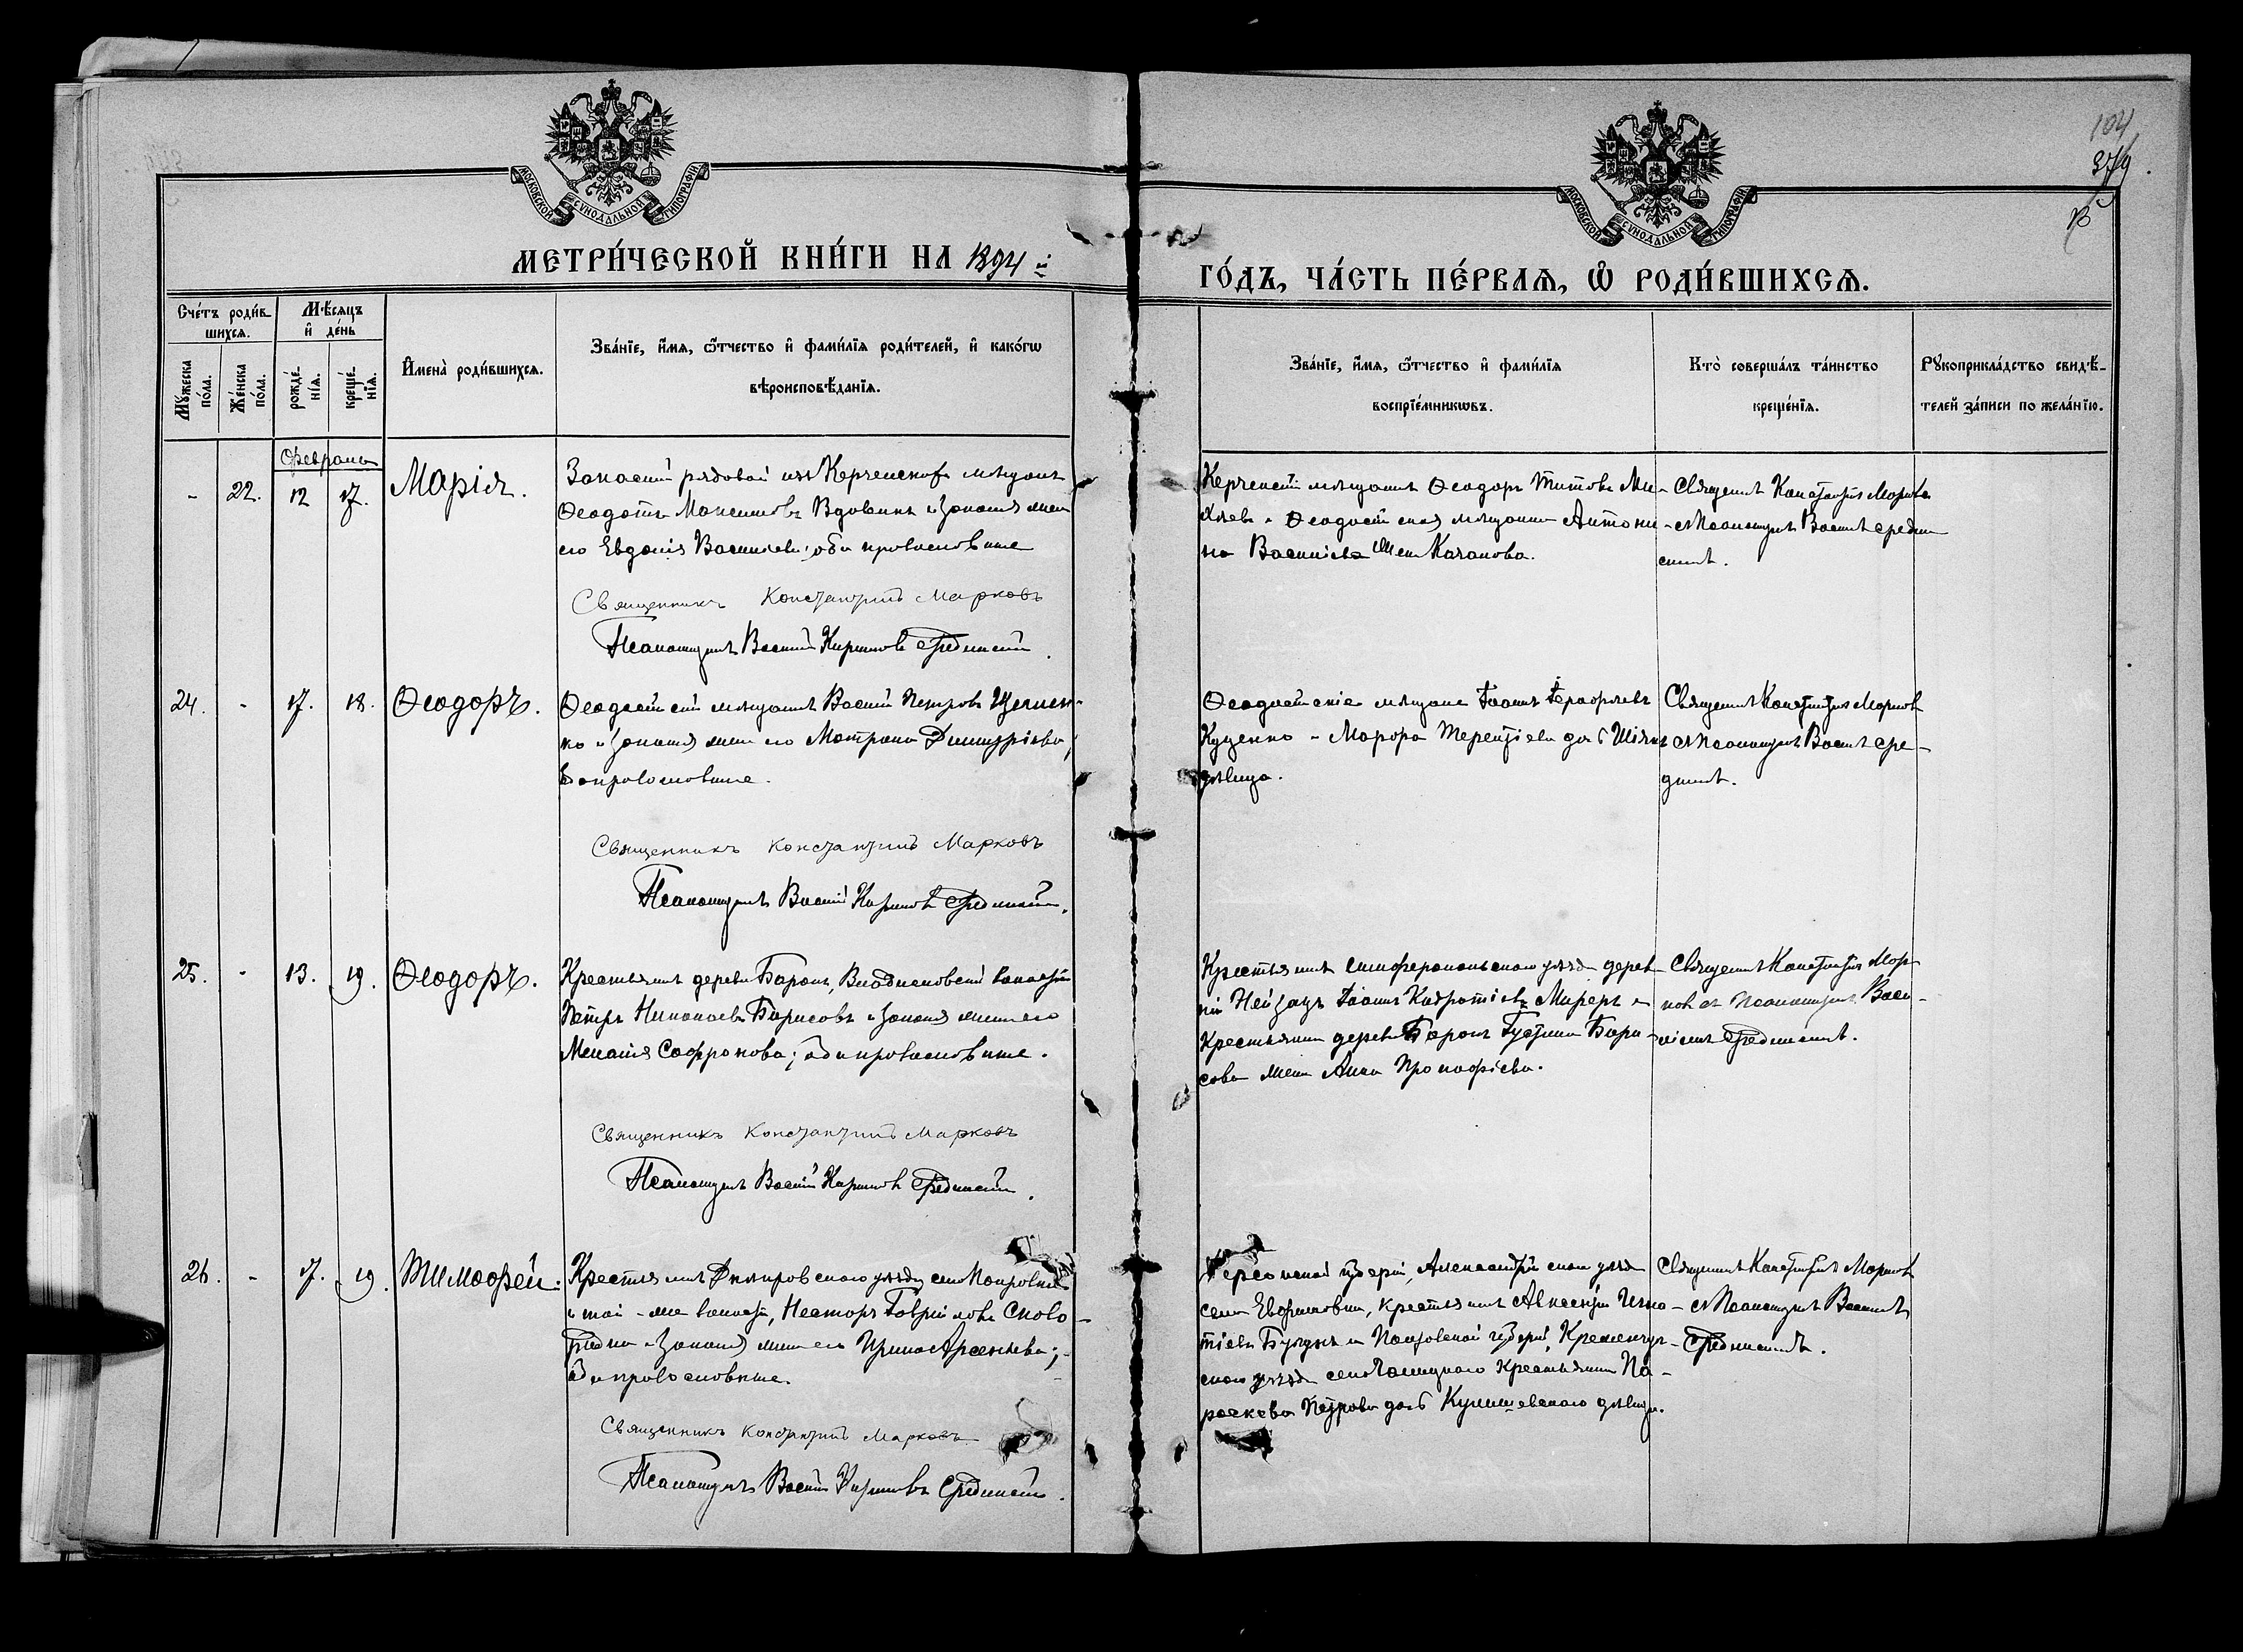 104
379
МОСКОВСКОЙ СУНОДАЛЬНОЙ ТИПОГРАФІИ
МОСКОВСКОЙ СУНОДАЛЬНОЙ ТИПОГРАФІИ
МЕТРИ́ЧЕСКОЙ КНИ́ГИ НА 1894 й
ГО́ДЪ, ЧА́СТЬ ПЕ́РВАѦ, Ѡ РОДИ́ВШИХСѦ.
Сче́тъ роди́в-
шихсѧ.
Мѣ́сяцъ
и҆ де́нь
Мꙋ́жеска
по́ла.
Же́нска
по́ла.
рожде́-
нїѧ.
креще́-
нїѧ.
И҆мена̀ роди́вшихсѧ.
Зва́нїе, и҆́мѧ, ѻ҆́тчество и҆ фами́лїѧ роди́телей, и҆ како́гѡ
вѣроисповѣ́данїѧ.
Зва́нїе, и҆́мѧ, ѻ҆́тчество и҆ фами́лїѧ
воспрїе́мникѡвъ.
Кто̀ соверша́лъ та́инство
креще́нїѧ.
Рꙋкоприкла́дство свидѣ́-
телей за́писи по жела́нїю.
Февраль
- 22. 12 17. Марія.
Запасный рядовой изъ Керченскихъ мѣщанъ
Ѳеодотъ Максимовъ Вдовинъ и законная жена
его Евдокія Васильева; оба православные
Священникъ Константинъ Марковъ
Псаломщикъ Василій Кириловъ Срединскій.
Керченскій мѣщанинъ Ѳеодоръ Титовъ
и Ѳеодосійская мѣщанка Антони-
на Васильева Качанова.
Священникъ Константинъ Марковъ
съ Псаломщикъ Василій Средин
скимъ.
24. - 17. 18. Ѳеодоръ.
Ѳеодосійскій мѣщанинъ Василій Петровъ
ко и законная жена его Матрона Димитріева,
оба православные.
Священникъ Константинъ Марковъ
Псаломщикъ Василій Кириловъ Срединскій.
Ѳеодосійскіе мѣщане Іоаннъ
Куценко и Терентіева дочь
дѣвица.
Священникъ Константинъ Марковъ
съ Псаломщикъ Василій Сре-
25. - 13. 19. Ѳеодоръ.
Крестьянинъ деревни Баронъ, Владиславской волости
Петръ Николаевъ Борисовъ и законная жена его
Меланія Сафронова; оба православные.
Священникъ Константинъ Марковъ
Псаломщикъ Василій Кириловъ Срединскій.
Крестьянинъ Симферопольскаго уѣзда дерев-
ни Нейзацъ Іоаннъ и
крестьянина деревни Баронъ Бори-
сова жена Анна Прокофіева.
Священникъ Константинъ Мар-
ковъ съ Псаломщикъ Васи-
ліемъ Срединскимъ.
26. - 17. 19. Тимоѳей.
Крестьянинъ Днѣпровскаго уѣзда, села Покровки
и той-же волости, Несторъ Гавриловъ Сково-
родка и законная жена его Ирина Арсеньева;
оба православные.
Священникъ Константинъ Марковъ
Псаломщикъ Василій Кириловъ Срединскій.
Херсонской губерніи, Александрійскаго уѣзда
села крестьянинъ Авксентій Игна-
тіевъ и Полтавской губерніи, Кременчуг-
скаго уѣзда села крестьянина Па-
раскева Петрова дочь дѣвица.
Священникъ Константинъ Марковъ
съ Псаломщикъ Василій
Срединскимъ.